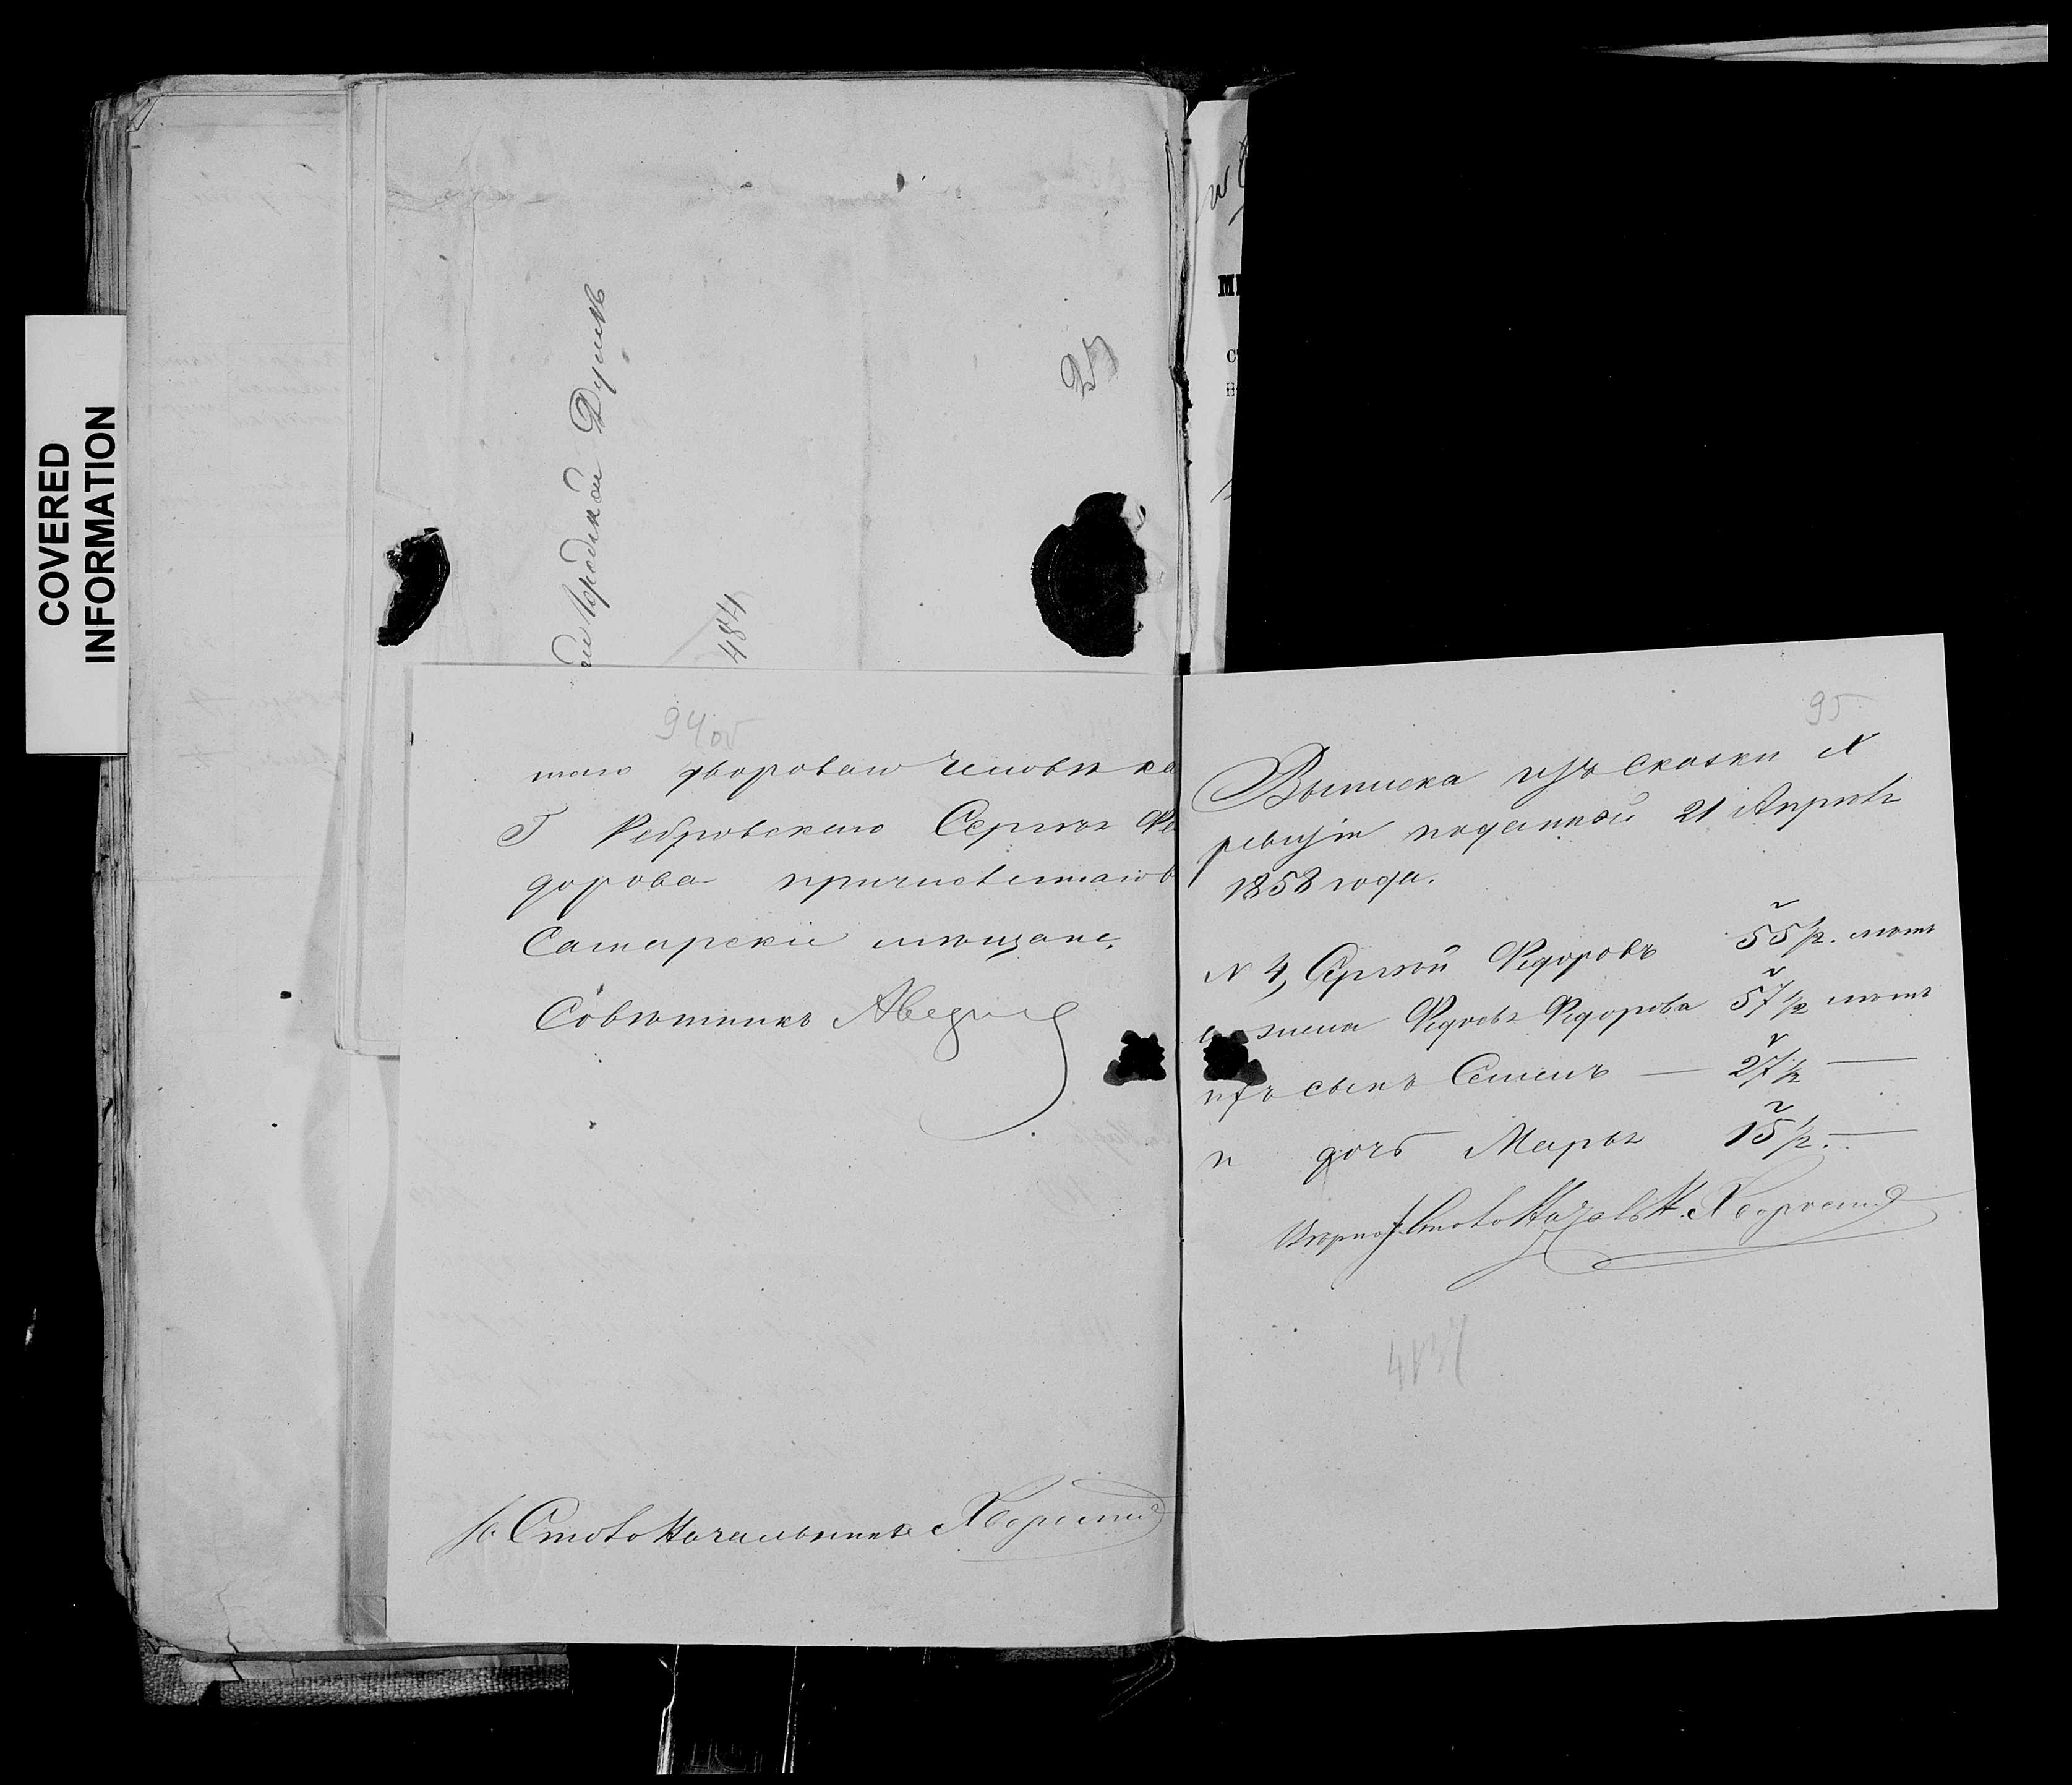 COVERED
INFORMATION
Городской Думѣ
484
25
94 об
таго двороваго человѣка
Г Ребровскаго Сергѣя Фе
дорова причисленнаго в
Самарскіе мѣщане,
Совѣтникъ
Столоначальникъ
95
Выписка изъ сказки X
ревизіи поданной 21 Апрѣля
1858 года.
N 4, Сергѣй Федоровъ 55 1/2. лѣтъ
жена Федосья Федорова 57 1/2 лѣтъ
ихъ сынъ Семенъ — 27 1/2 —
и дочь Марья 15 1/2. —
Вѣрно: